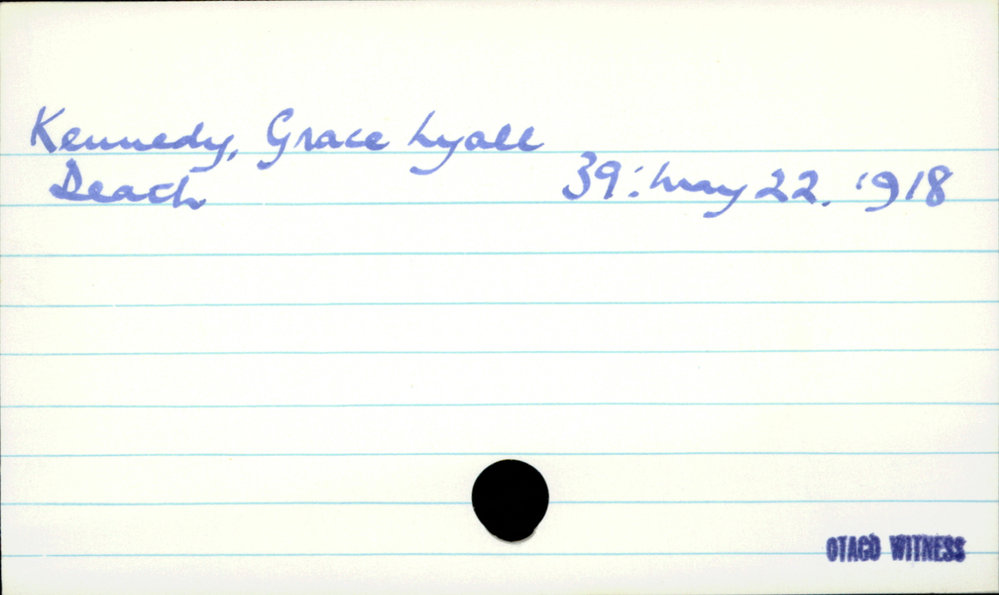 Kennedy, Grace Lyall
Death 39: May 22. 1918
OTAGO WITNESS